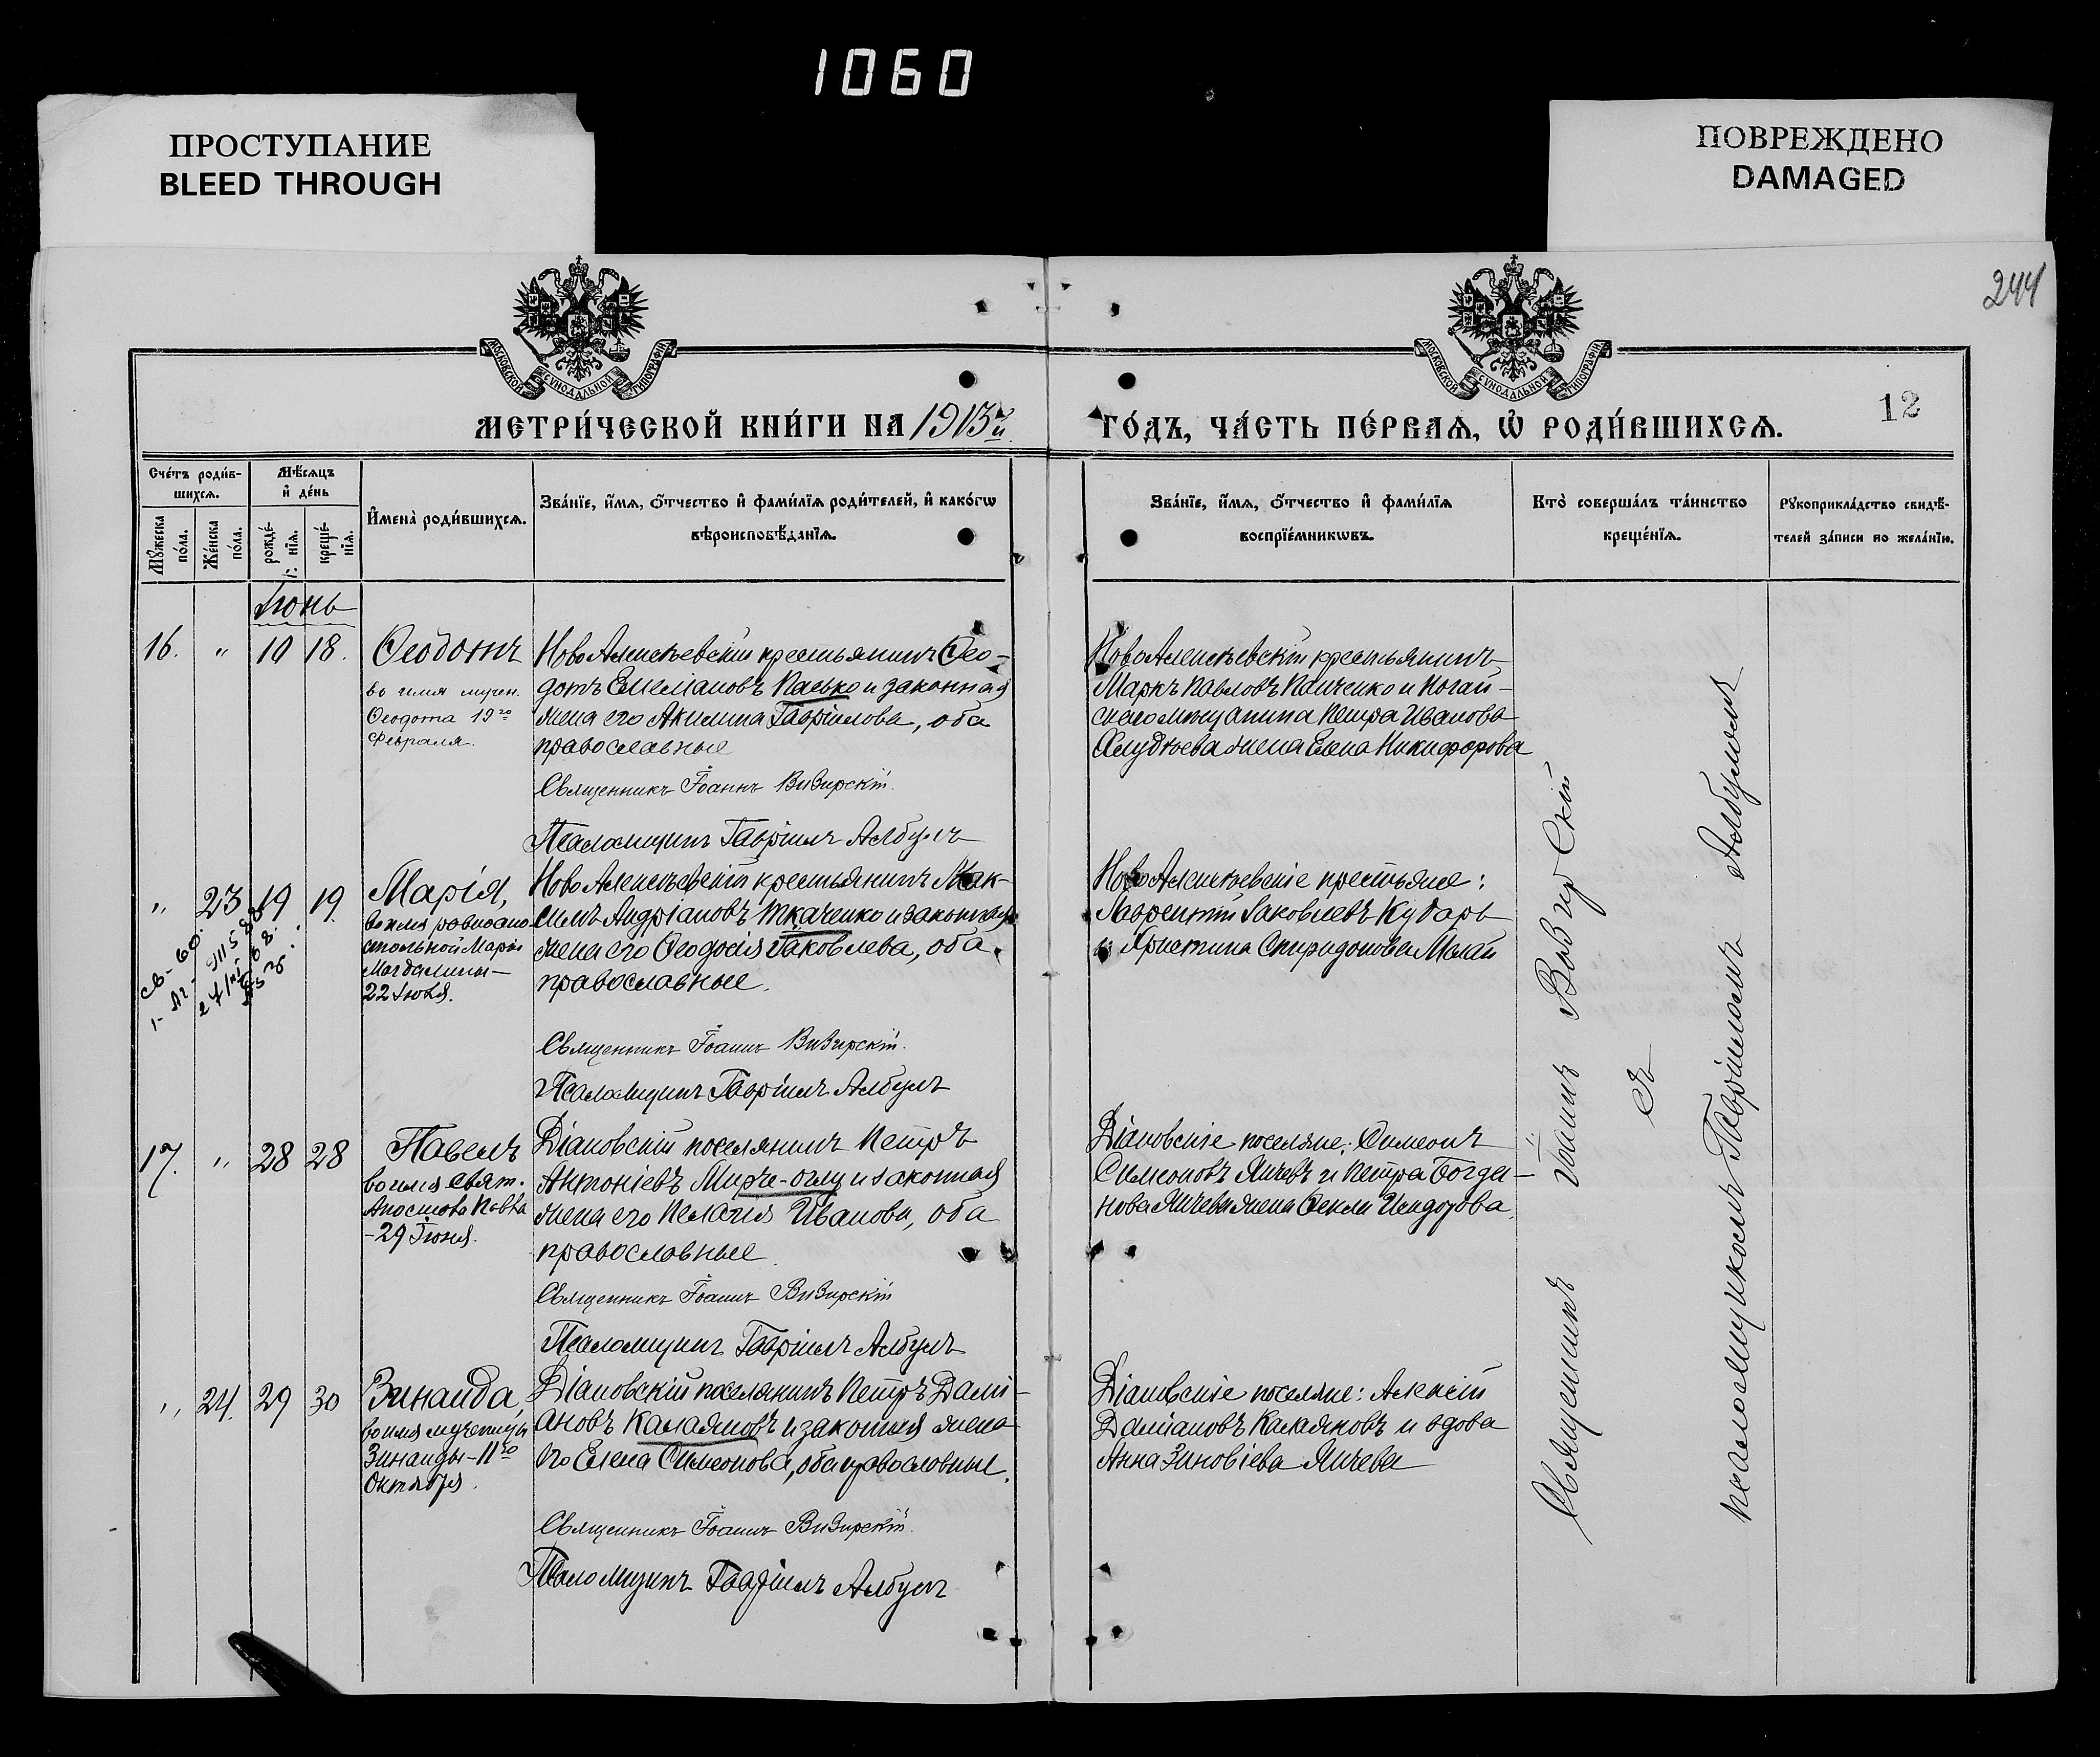 1060
ПРОСТУПАНИЕ
BLEED THROUGH
ПОВРЕЖДЕНО
DAMAGED
244
МОСКОВСКОЙ СѴНОДАЛЬНОЙ ТИПОГРАФІИ
МОСКОВСКОЙ СѴНОДАЛЬНОЙ ТИПОГРАФІИ
МЕТРИ́ЧЕСКОЙ КНИ́ГИ НА 1913й
ГО́ДЪ, ЧА́СТЬ ПЕ́РВАѦ, Ѡ҆ РОДИ́ВШИХСѦ.
12
Сче́тъ роди́в-
шихсѧ.
Мꙋ́жеска по́ла.
Же́нска по́ла.
Мѣ́сѧцъ
и҆ де́нь
рожде́-
нїѧ.
креще́-
нїѧ.
И҆мена̀ роди́вшихсѧ.
Зва́нїе, и҆́мѧ, ѻ҆́тчество и҆ фами́лїѧ роди́телей, и҆ како́гѡ
вѣроисповѣ́данїѧ.
Зва́нїе, и҆́мѧ, ѻ҆́тчество и҆ фами́лїѧ
воспрїе́мникѡвъ.
Кто̀ соверша́лъ та́инство
креще́нїѧ.
Рꙋкоприкла́дство свидѣ́-
телей за́писи по жела́нїю.
Іюнь
16. " 10 18.
Ѳеодотъ
во имя мучен.
Ѳеодота 19го
Февраля.
НовоАлексѣевскій крестьянинъ Ѳео-
дотъ Емеліановъ Пасько и законная
жена его Акилина Гавріилова, оба
православные
Священникъ Іоаннъ Визирскій.
Псаломщикъ Гавріилъ Албулъ
НовоАлексѣевскій крестьянинъ
Маркъ Павловъ Панченко и Ногай-
скаго мѣщанина Петра Иванова
жена Елена Никифорова
" 23 19 19.
Марія,
во имя равноапо
стольной Маріи
Магдалины-
22 Іюля.
НовоАлексѣевскій крестьянинъ Мак-
симъ Андріановъ Ткаченко и законная
жена его Ѳеодосія Іаковлева, оба
православные.
Священникъ Іоаннъ Визирскій.
Псаломщикъ Гавріилъ Албулъ
НовоАлексѣевскіе крестьяне:
Лаврентій Іаковлевъ Кударь
и Христина Спиридонова Малай
17. " 28 28
Павелъ
во имя свят.
Апостола Павла
-29 Іюня.
Діановскій поселянинъ Петръ
Антоніевъ Мирче-оглу и законная
жена его Пелагія Иванова, оба
православные.
Священникъ Іоаннъ Визирскій
Псаломщикъ Гавріилъ Албулъ
Діановскіе поселяне: Симеонъ
Симеоновъ Янчевъ и Петра Богда-
нова Янчева жена Ѳекла
" 24. 29 30
Зинаида,
во имя мученицы
Зинаиды-11го
Октября.
Діановскій поселянинъ Петръ Дамі-
ановъ Калаяновъ и законная жена
его Елена Симеонова, оба православные.
Священникъ Іоаннъ Визирскій.
Псаломщикъ Гавріилъ Албулъ
Діановскіе поселяне: Алексій
Даміановъ Калаяновъ и вдова
Анна Зиновіева Янчева
Священникъ Іоаннъ Визирскій
съ
псаломщикомъ Гавріиломъ Албуломъ